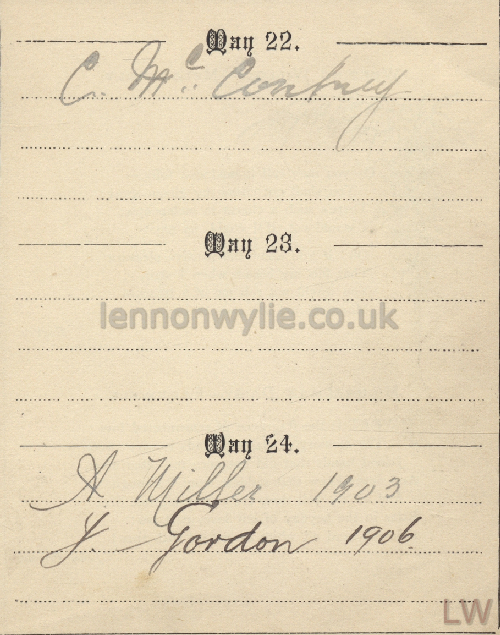 May 22.
C. McConkey
May 23.
lennonwylie.co.uk
May 24.
A Miller 1903
J. Gordon 1906
LW